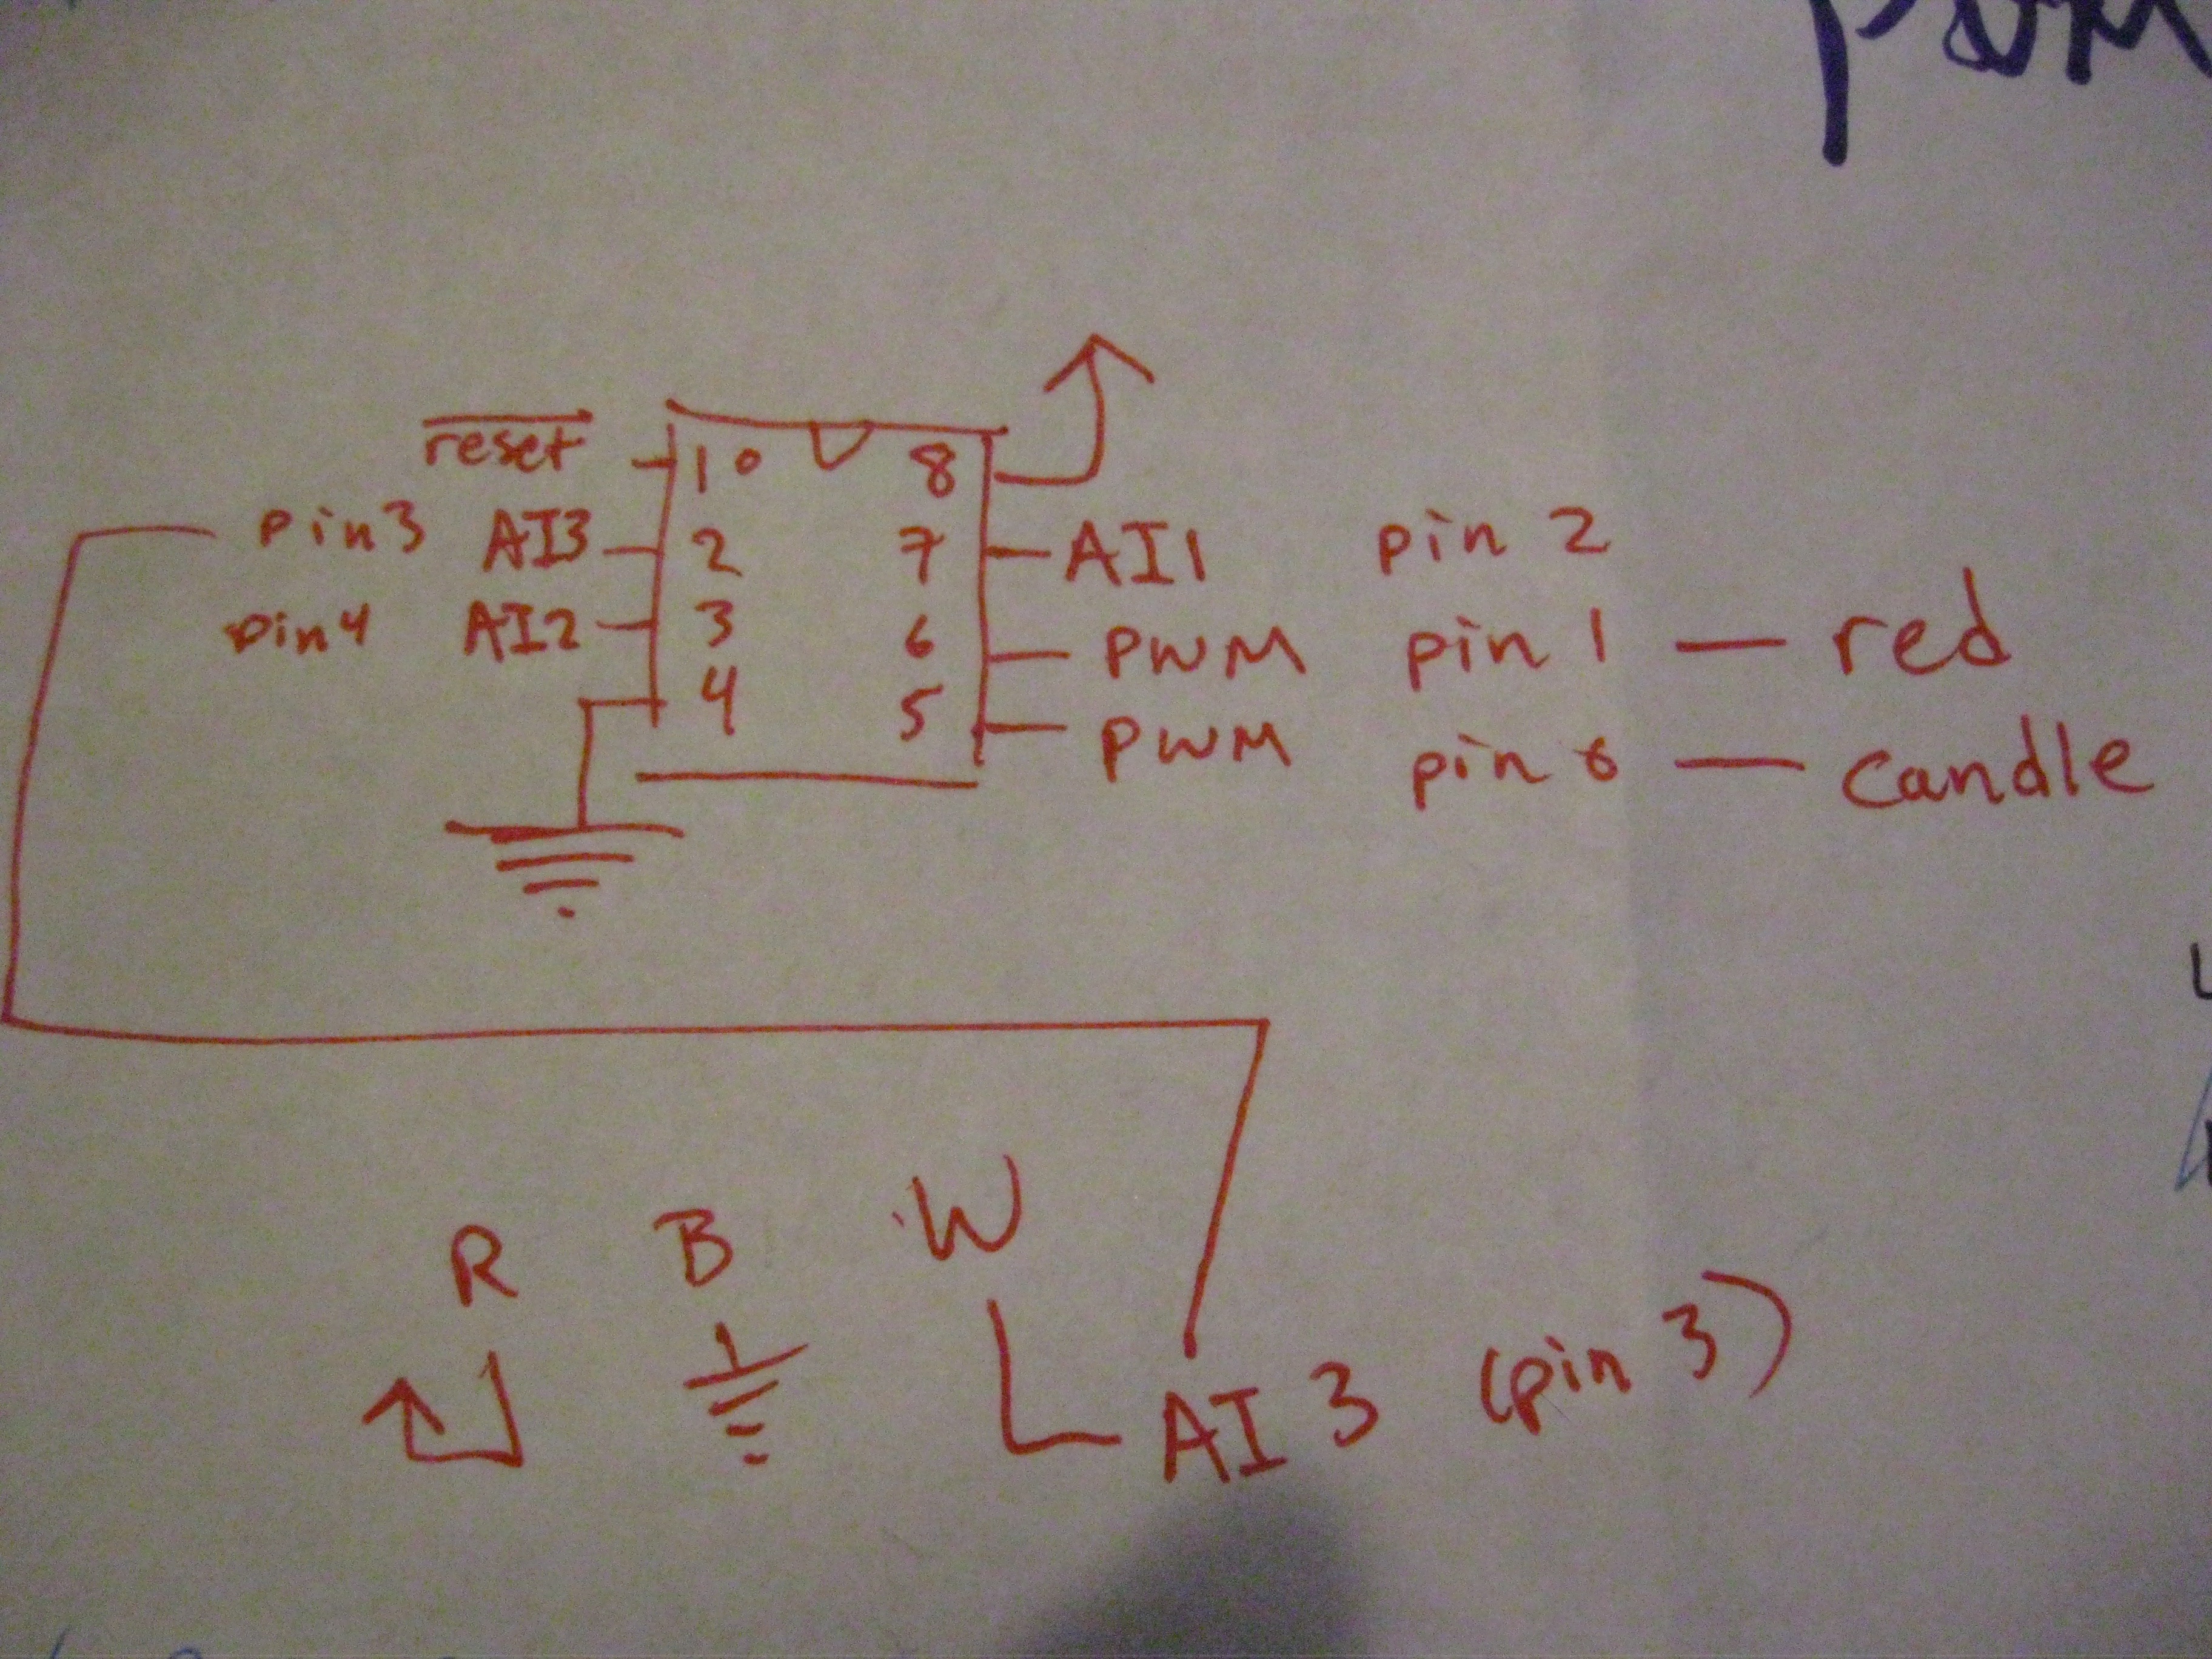 PWM
reset 1 8
pin3 AI3 2 7 AI1 pin 2
pin4 AI2 3 6 PWM pin 1 — red
4 5 PWM pin 0 — candle
R B W
AI 3 (pin 3)